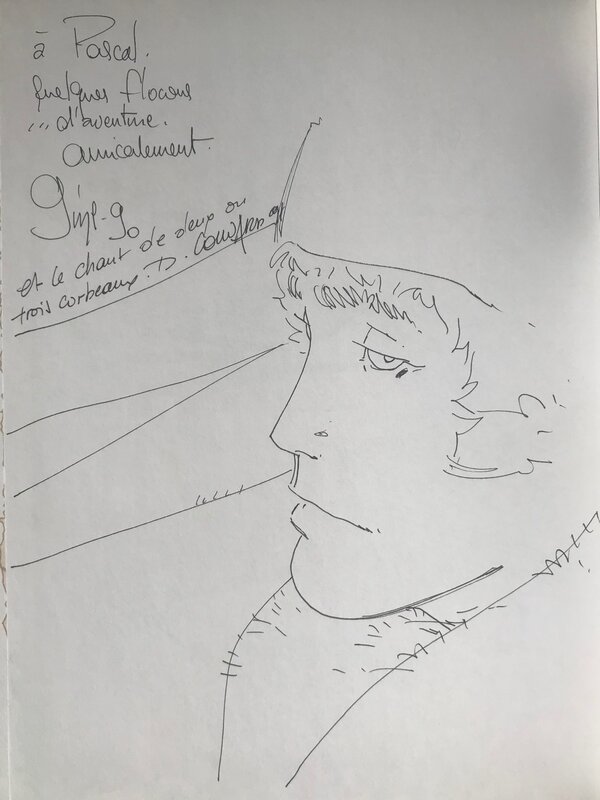 à Pascal.
quelques flocons
... d'aventure.
amicalement.
et le chant de deux ou
trois corbeaux. D.